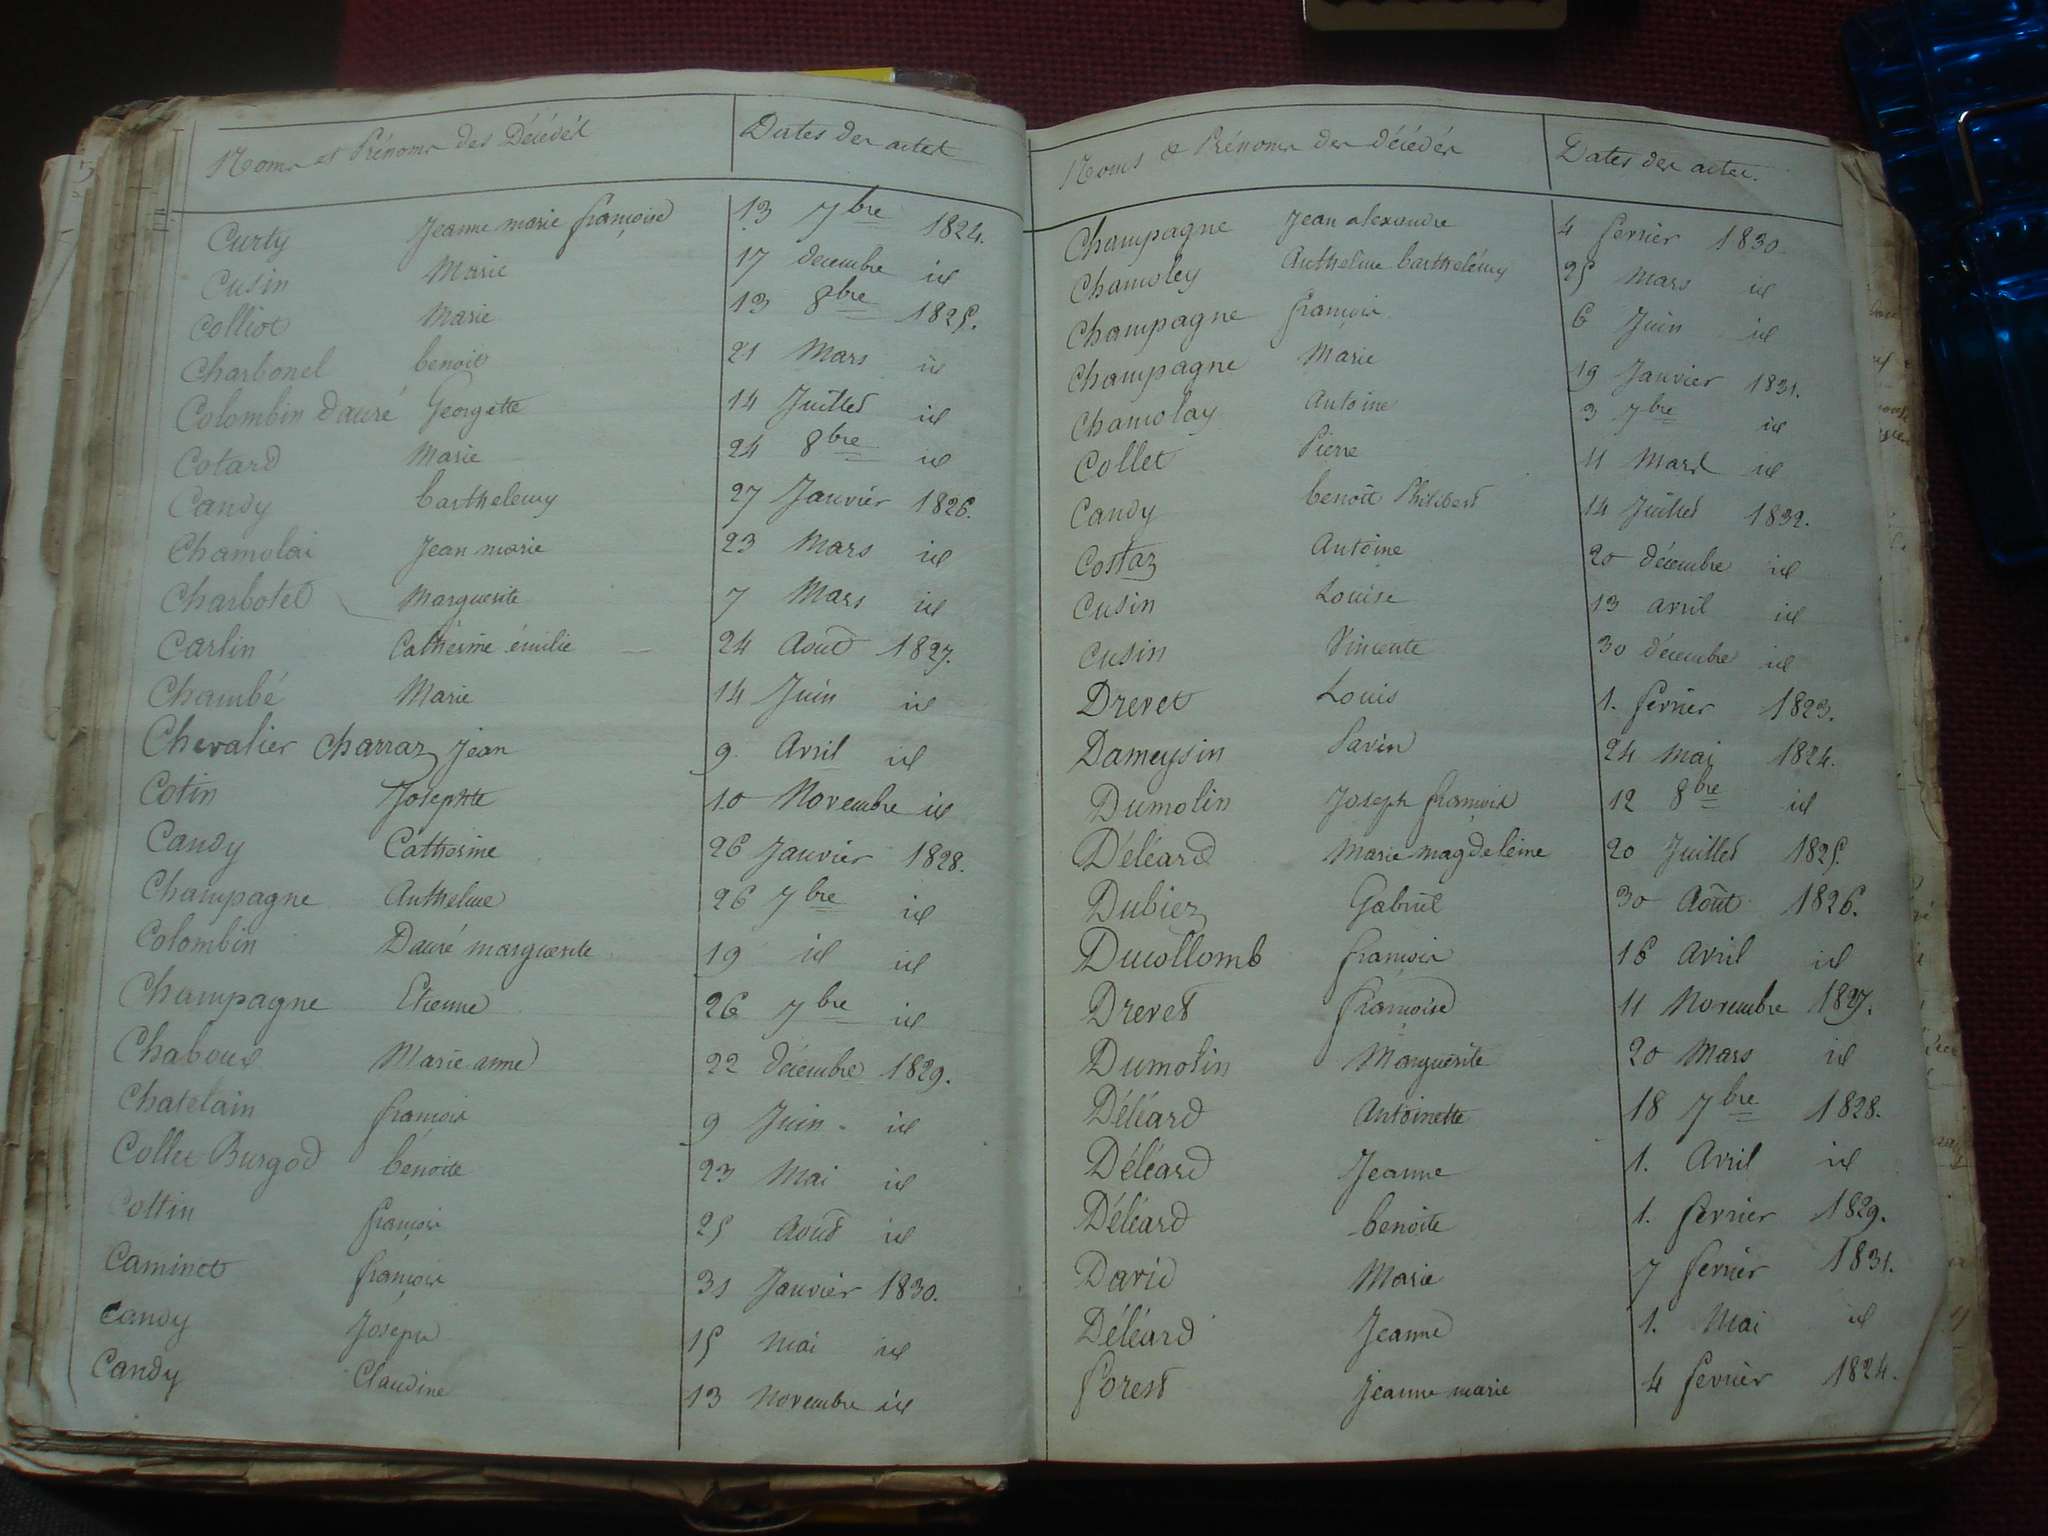 Noms et Prénoms des Décédés Dates des actes
Curty Jeanne marie françoise 13 7bre 1824.
Cusin Marie 17 decembre id
Colliot Marie 13 8bre 1825.
Charbonel benoit 21 Mars id
Colombin dauré Georgette 14 Juillet id
Cotard Marie 24 8bre id
Candy barthelemy 27 Janvier 1826.
Chamolai Jean marie 23 Mars id
Charbotel Marguerite 7 Mars id
Carlin Cathérine émilie 24 Aout 1827.
Chambé Marie 14 Juin id
Chevalier Charraz Jean 9. Avril id
Cotin Josephte 10 Novembre id
Candy Catherine 26 Janvier 1828.
Champagne Anthelme 26 7bre id
Colombin Dauré marguerite 19 id id
Champagne Etienne 26 7bre id
Chaboud Marie anne 22 décembre 1829.
Chatelain françois 9 Juin id
Collet Burgod benoite 23 Mai id
Cottin françois 25 Aout id
Caminet françois 31 Janvier 1830.
Candy Joseph 15 mai id
Candy Claudine 13 Novembre id
Noms & Prénoms des décédés Dates des actes.
Champagne Jean alexandre 4 fevrier 1830.
Chamoley Anthelme barthelémy 25 Mars id
Champagne françois 6 Juin id
Champagne Marie 19 Janvier 1831.
Chamolay Antoine 3 7bre id
Collet Pierre 11 Mars id
Candy benoît Philibert 14 Juillet 1832.
Costaz Antoine 20 décembre id
Cusin Louise 13 avril id
Cusin Vincente 30 décembre id
Drevet Louis 1. fevrier 1823.
Dameysin Pavin 24 Mai 1824.
Dumolin Joseph françois 12 8bre id
Déléard Marie magdeleine 20 Juillet 1825.
Dubiez Gabriel 30 Août 1826.
Ducollomb françois 16 Avril id
Drevet françoise 11 Novembre 1827.
Dumolin Marguerite 20 Mars id
Déléard Antoinette 18 7bre 1828.
Déléard Jeanne 1. Avril id
Déléard benoite 1. fevrier 1829.
David Marie 7 fevrier 1831.
Déléard Jeanne 1. Mai id
forest jeanne marie 4 fevrier 1824.